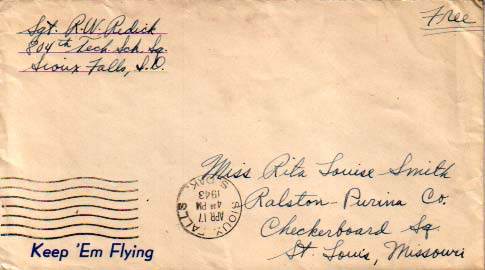 Sgt. R.W. Redick
804th Tech. Sch. Sq.
Sioux Falls, S.D.
Free
SIOUX FALLS
S. DAK.
APR 17
4 PM
1943
Miss Rita Louise Smith
Ralston-Purina Co.
Checkerboard Sq.
St. Louis, Missouri
Keep 'Em Flying